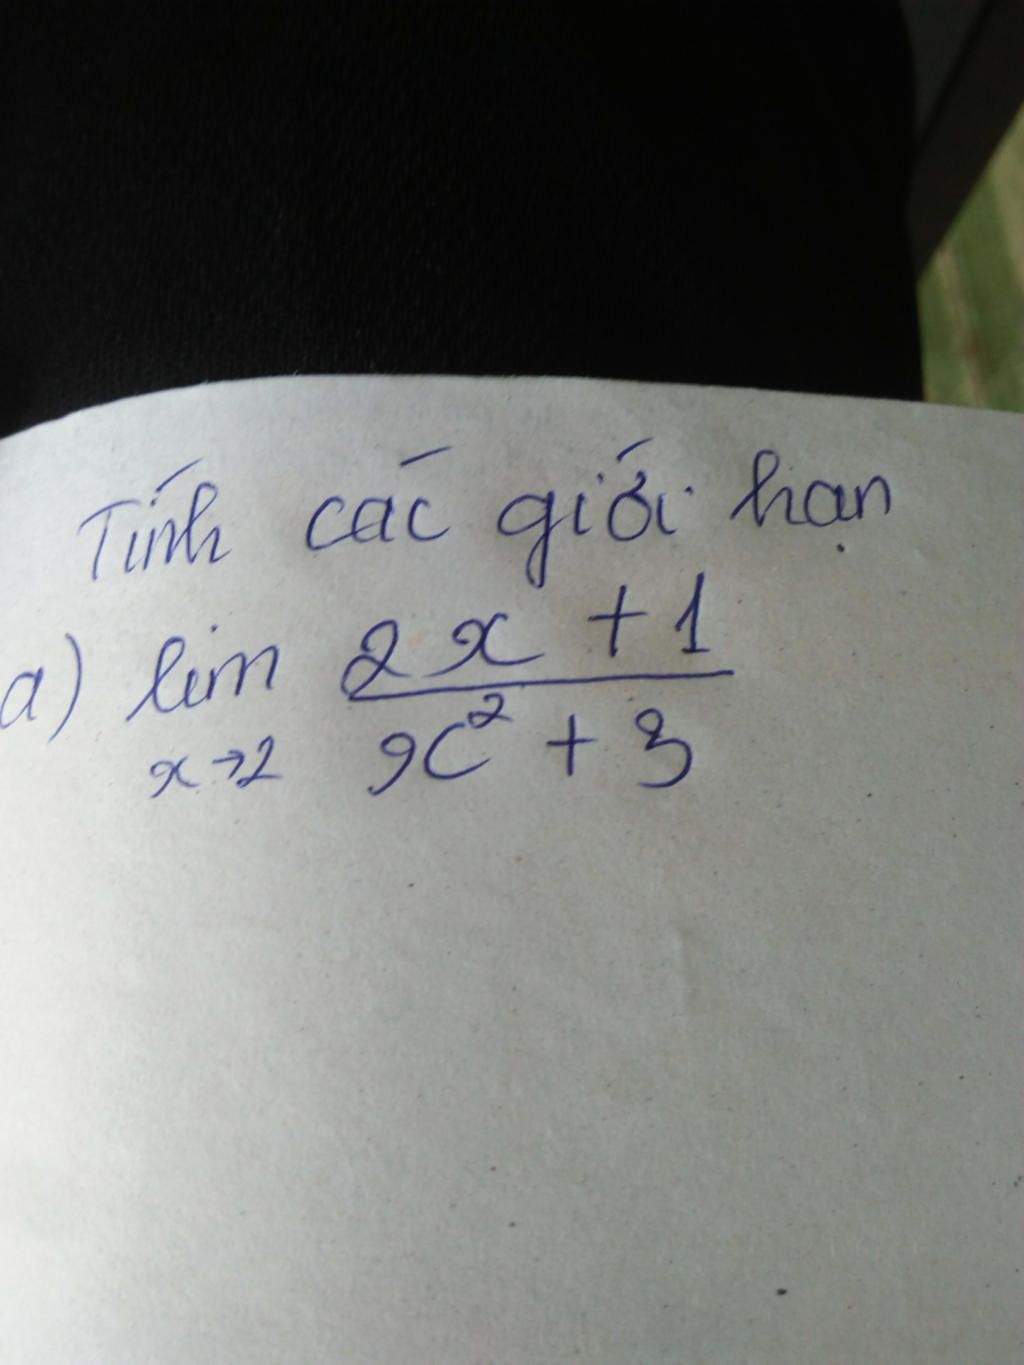 Tính các giới hạn
a) lim 2x + 1
x→2 x² + 3